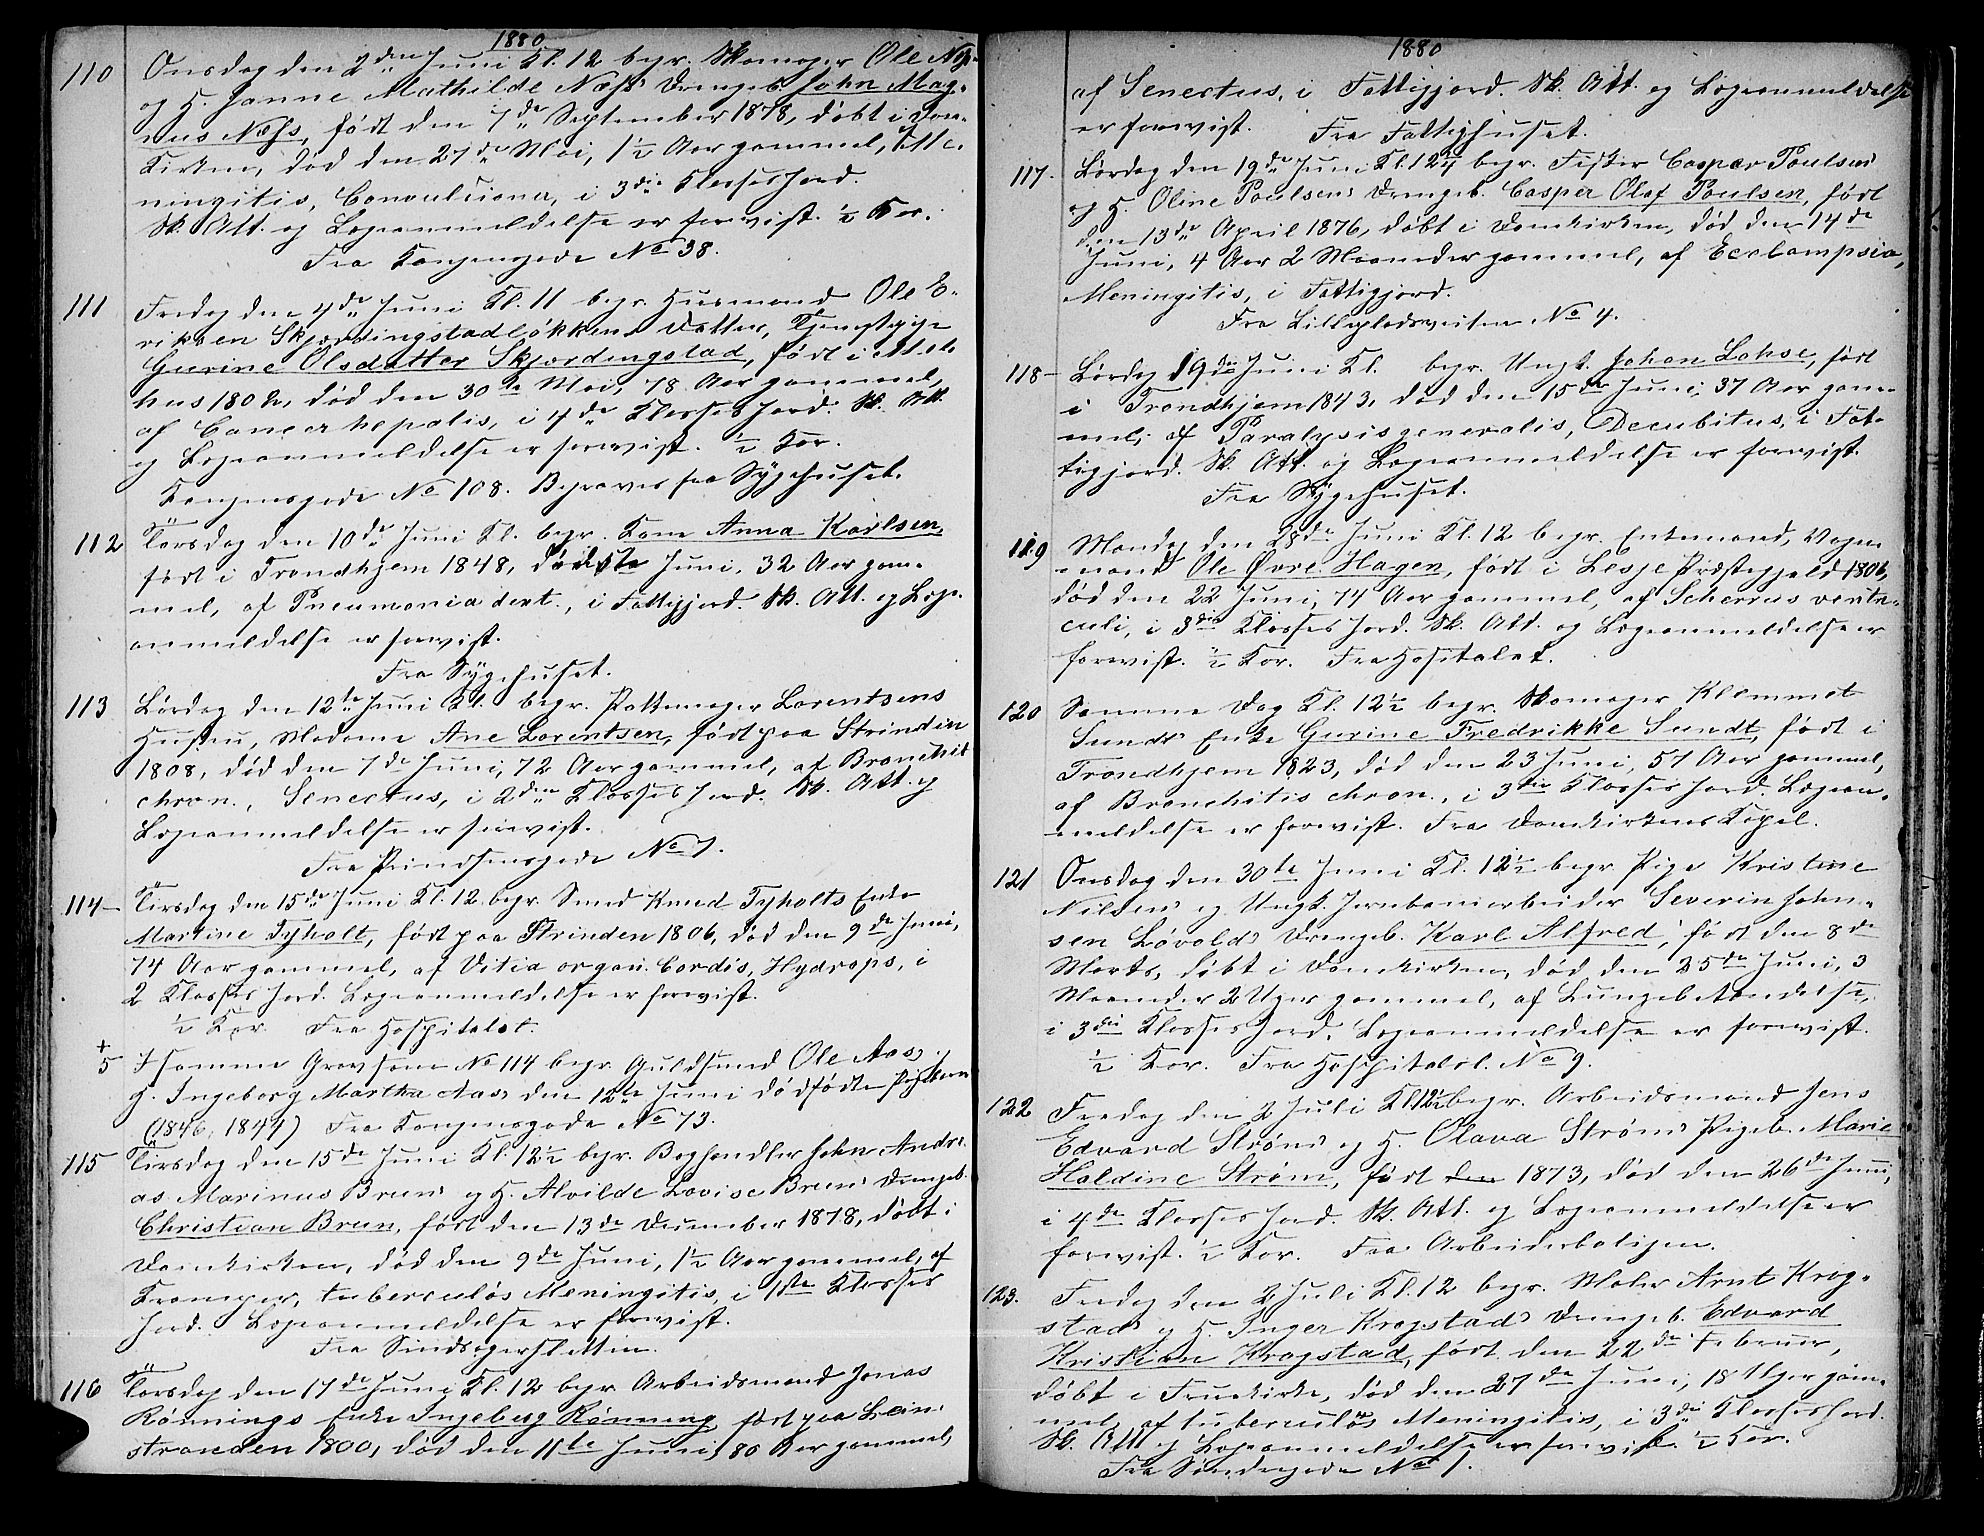 1880
110 Onsdag den 2den Juni Kl. 12 begr. Skomager Ole Næs
og H. Janne Mathilde Næss' Drengeb. John Mag-
nus Næss, født den 7de September 1878, døbt i Dom-
kirken, død den 27de Mai, 1½ Aar gammel, af Me-
ningitis, Convulsiona, i 3die Klasses Jord.
Sk. Att. og Lægeanmeldelse er forevist. ½ Kor.
Fra Kongensgade No 38.
111 Fredag den 4de Juni Kl. 11 begr. Husmand Ole E-
riksen Skjærdingstadløkkens Datter, Tjenestepige
Gurine Olsdatter Skjærdingstad, født i Mel-
hus 1802, død den 30te Mai, 78 Aar gammel,
af Cancer hepatis, i 4de Klasses Jord. Sk. Att.
og Lægeanmeldelse er forevist. ½ Kor.
Kongensgade No 108. Begraves fra Sygehuset.
112 Torsdag den 10de Juni Kl. begr. Kone Anna Karlsen,
født i Trondhjem 1848, død Juni, 32 Aar gam-
mel, af Pneumonia dext., i Fattigjord. Sk. Att. og Læge-
anmeldelse er forevist.
Fra Sygehuset.
113 Lørdag den 12te Juni Kl. begr. Pottemager Lorentsens
Hustru, Madame Ane Lorentsen, født paa Strinden
1808, død den 7de Juni, 72 Aar gammel, af Bronchit
chron., Senectus, i 2den Klasses Jord. Sk. Att. og
Lægeanmeldelse er forevist.
Fra Prindsensgade No 7.
114 Tirsdag den 15de Juni Kl. 12 begr. Smed Knud Tyholts Enke
Martine Tyholt, født paa Strinden 1806, død den 9de Juni,
74 Aar gammel, af Vitia organ. Cordis, Hydrops, i
2 Klasses Jord. Lægeanmeldelse er forevist.
½ Kor. Fra Hospitalet.
+
5 I samme Grav som No 114 begr. Guldsmed Ole Aas og
H. Ingeborg Martha Aas' den 12te Juni dødfødte Pigebarn
(1846, 1847) Fra Kongensgade No 73.
115 Tirsdag den 15de Juni Kl. 12½ begr. Boghandler John Andre-
as Marinus Bruns og H. Alvilde Lovise Bruns Drengeb.
Christian Brun, født den 13de December 1878, døbt i
Domkirken, død den 9de Juni, 1½ Aar gammel, af
Kramper, tuberculøs Meningitis, i 1ste Klasses
Jord. Lægeanmeldelse er forevist.
Fra
116 Torsdag den 17de Juni Kl. 12 begr. Arbeidsmand Jonas
Rønnings Enke Ingeborg Rønning, født paa Lein-
stranden 1800, død den 11te Juni, 80 Aar gammel,
1880
af Senectus, i Fattigjord. Sk. Att. og Lægeanmeldelse
er forevist. Fra Fattighuset.
117. Lørdag den 19de Juni Kl. 12¼ begr. Fisker Casper Poulsens
og H. Oline Poulsens Drengeb. Casper Olaf Poulsen, født
den 13de April 1876, døbt i Domkirken, død den 14de
Juni, 4 Aar 2 Maaneder gammel, af Ecclampsia,
Meningitis, i Fattigjord.
Fra No 4.
118 Lørdag 19de Juni Kl. begr. Ungk. Johan Lohse, født
i Trondhjem 1843, død den 15de Juni, 37 Aar gam-
mel, af Paralysis generalis, Decubitus, i Fat-
tigjord. Sk. Att. og Lægeanmeldelse er forevist.
Fra Sygehuset.
119 Mandag den 28de Juni Kl. 12 begr. Enkemand, Vogn-
mand Ole Øvre Hagen, født i Lesje Præstegjeld 1806,
død den 22 Juni, 74 Aar gammel, af Scherrus ventri-
culi, i 3die Klasses Jord. Sk. Att. og Lægeanmeldelse er
forevist. ½ Kor. Fra Hospitalet.
120 Samme Dag Kl. 12½ begr. Skomager Klemmet
Sundts Enke Gurine Fredrikke Sundt, født i
Trondhjem 1823, død den 23 Juni, 57 Aar gammel,
af Bronchitis chron., i 3die Klasses Jord. Lægean-
meldelse er forevist. Fra Domkirkens Kapel.
121 Onsdag den 30te Juni Kl. 12½ begr. Pige Kristine
Nilsens og Ungk. Jernbanearbeider Severin John-
sen Løvolds Drengeb. Karl Alfred, født den 8de
Marts, døbt i Domkirken, død den 25de Juni, 3
Maaneder 2 Uger gammel, af Lungebetændelse,
i 3die Klasses Jord. Lægeanmeldelse er forevist.
½ Kor. Fra Hospitalsl. No 9.
122 Fredag den 2 Juli Kl. 12½ begr. Arbeidsmand Jens
Edvard Strøms og H. Olava Strøms Pigeb. Marie
Haldine Strøm, født den 1873, død den 26de Juni,
i 4de Klasses Jord. Sk. Att. og Lægeanmeldelse er
forevist. ½ Kor. Fra Arbeiderboligen.
123. Fredag den 2 Juli Kl. 12 begr. Maler Arnt Krog-
stads og H. Inger Krogstads Drengeb. Edvard
Kristian Krogstad, født den 22de Februar,
døbt i Fruekirke, død den 27de Juni, 18 Uger gam-
mel, af tuberculøs Meningitis, i 3die Klasses Jord.
Sk. Att. og Lægeanmeldelse er forevist. ½ Kor.
Fra Søndregade No 1.